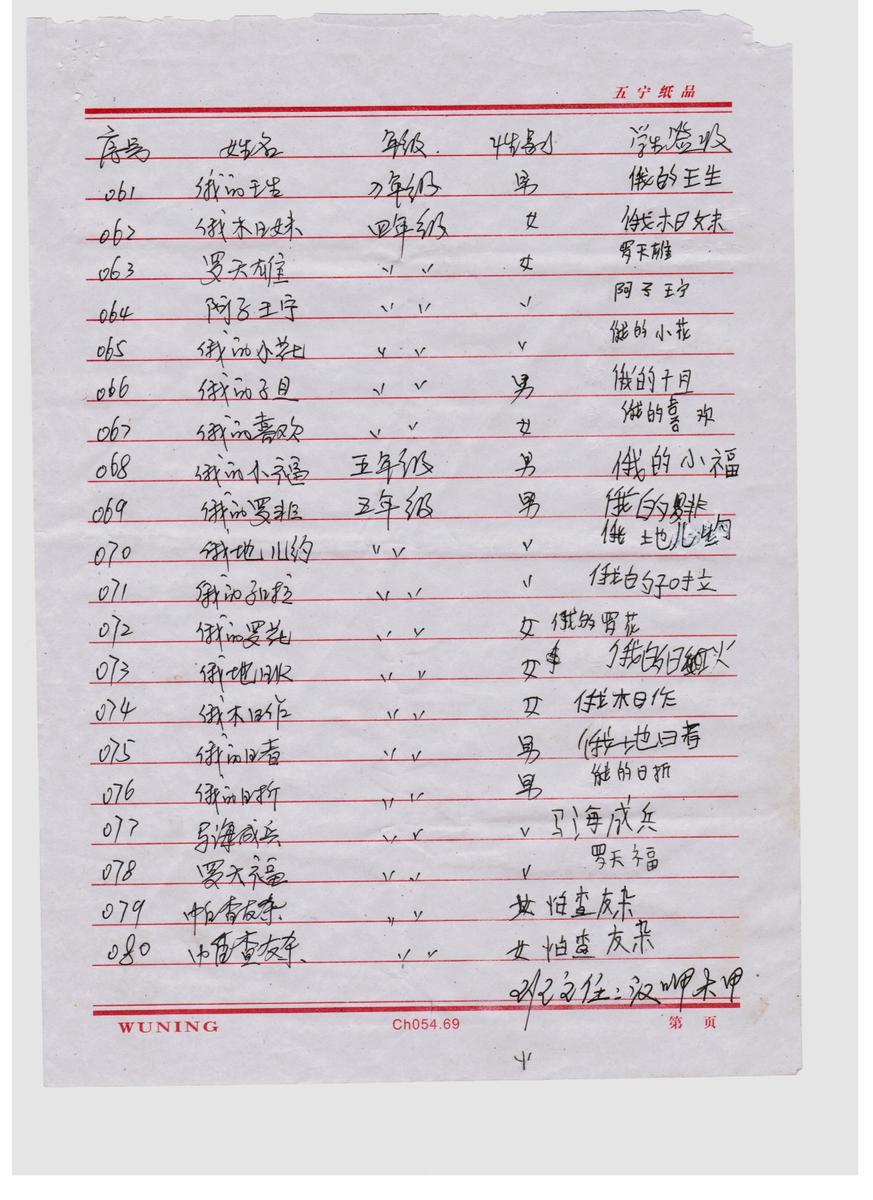 五宁纸品
序号 姓名 年级. 性别 学生签收
061 俄的王生 年级 男 俄的王生
062 俄木日妹 四年级 女 俄木日妹
063 罗天雄 〃 女 罗天雄
064 阿子王宁 〃 〃 阿子王宁
065 俄的小花 〃 〃 俄的小花
066 俄的子且 〃 男 俄的十月
067 俄的喜欢 〃 女 俄的喜欢
068 俄的小福 五年级 男 俄的小福
069 俄的罗非 五年级 男 俄的罗非
070 俄地儿约 〃 〃 俄土地儿约
071 俄的子拉 〃 〃 俄的子拉
072 俄的罗花 〃 女 俄的罗花
073 俄地日 〃 女 俄的日
074 俄木日作 〃 女 俄木日作
075 俄的日者 〃 男 俄地日者
076 俄的日折 〃 男 俄的日折
077 马海成兵 〃 〃 马海成兵
078 罗天福 〃 〃 罗天福
079 帕查友杂 〃 女 怕查友杂
080 查友杂 〃 女 怕查友杂
班主任:呷木甲
WUNING Ch054.69 第 页